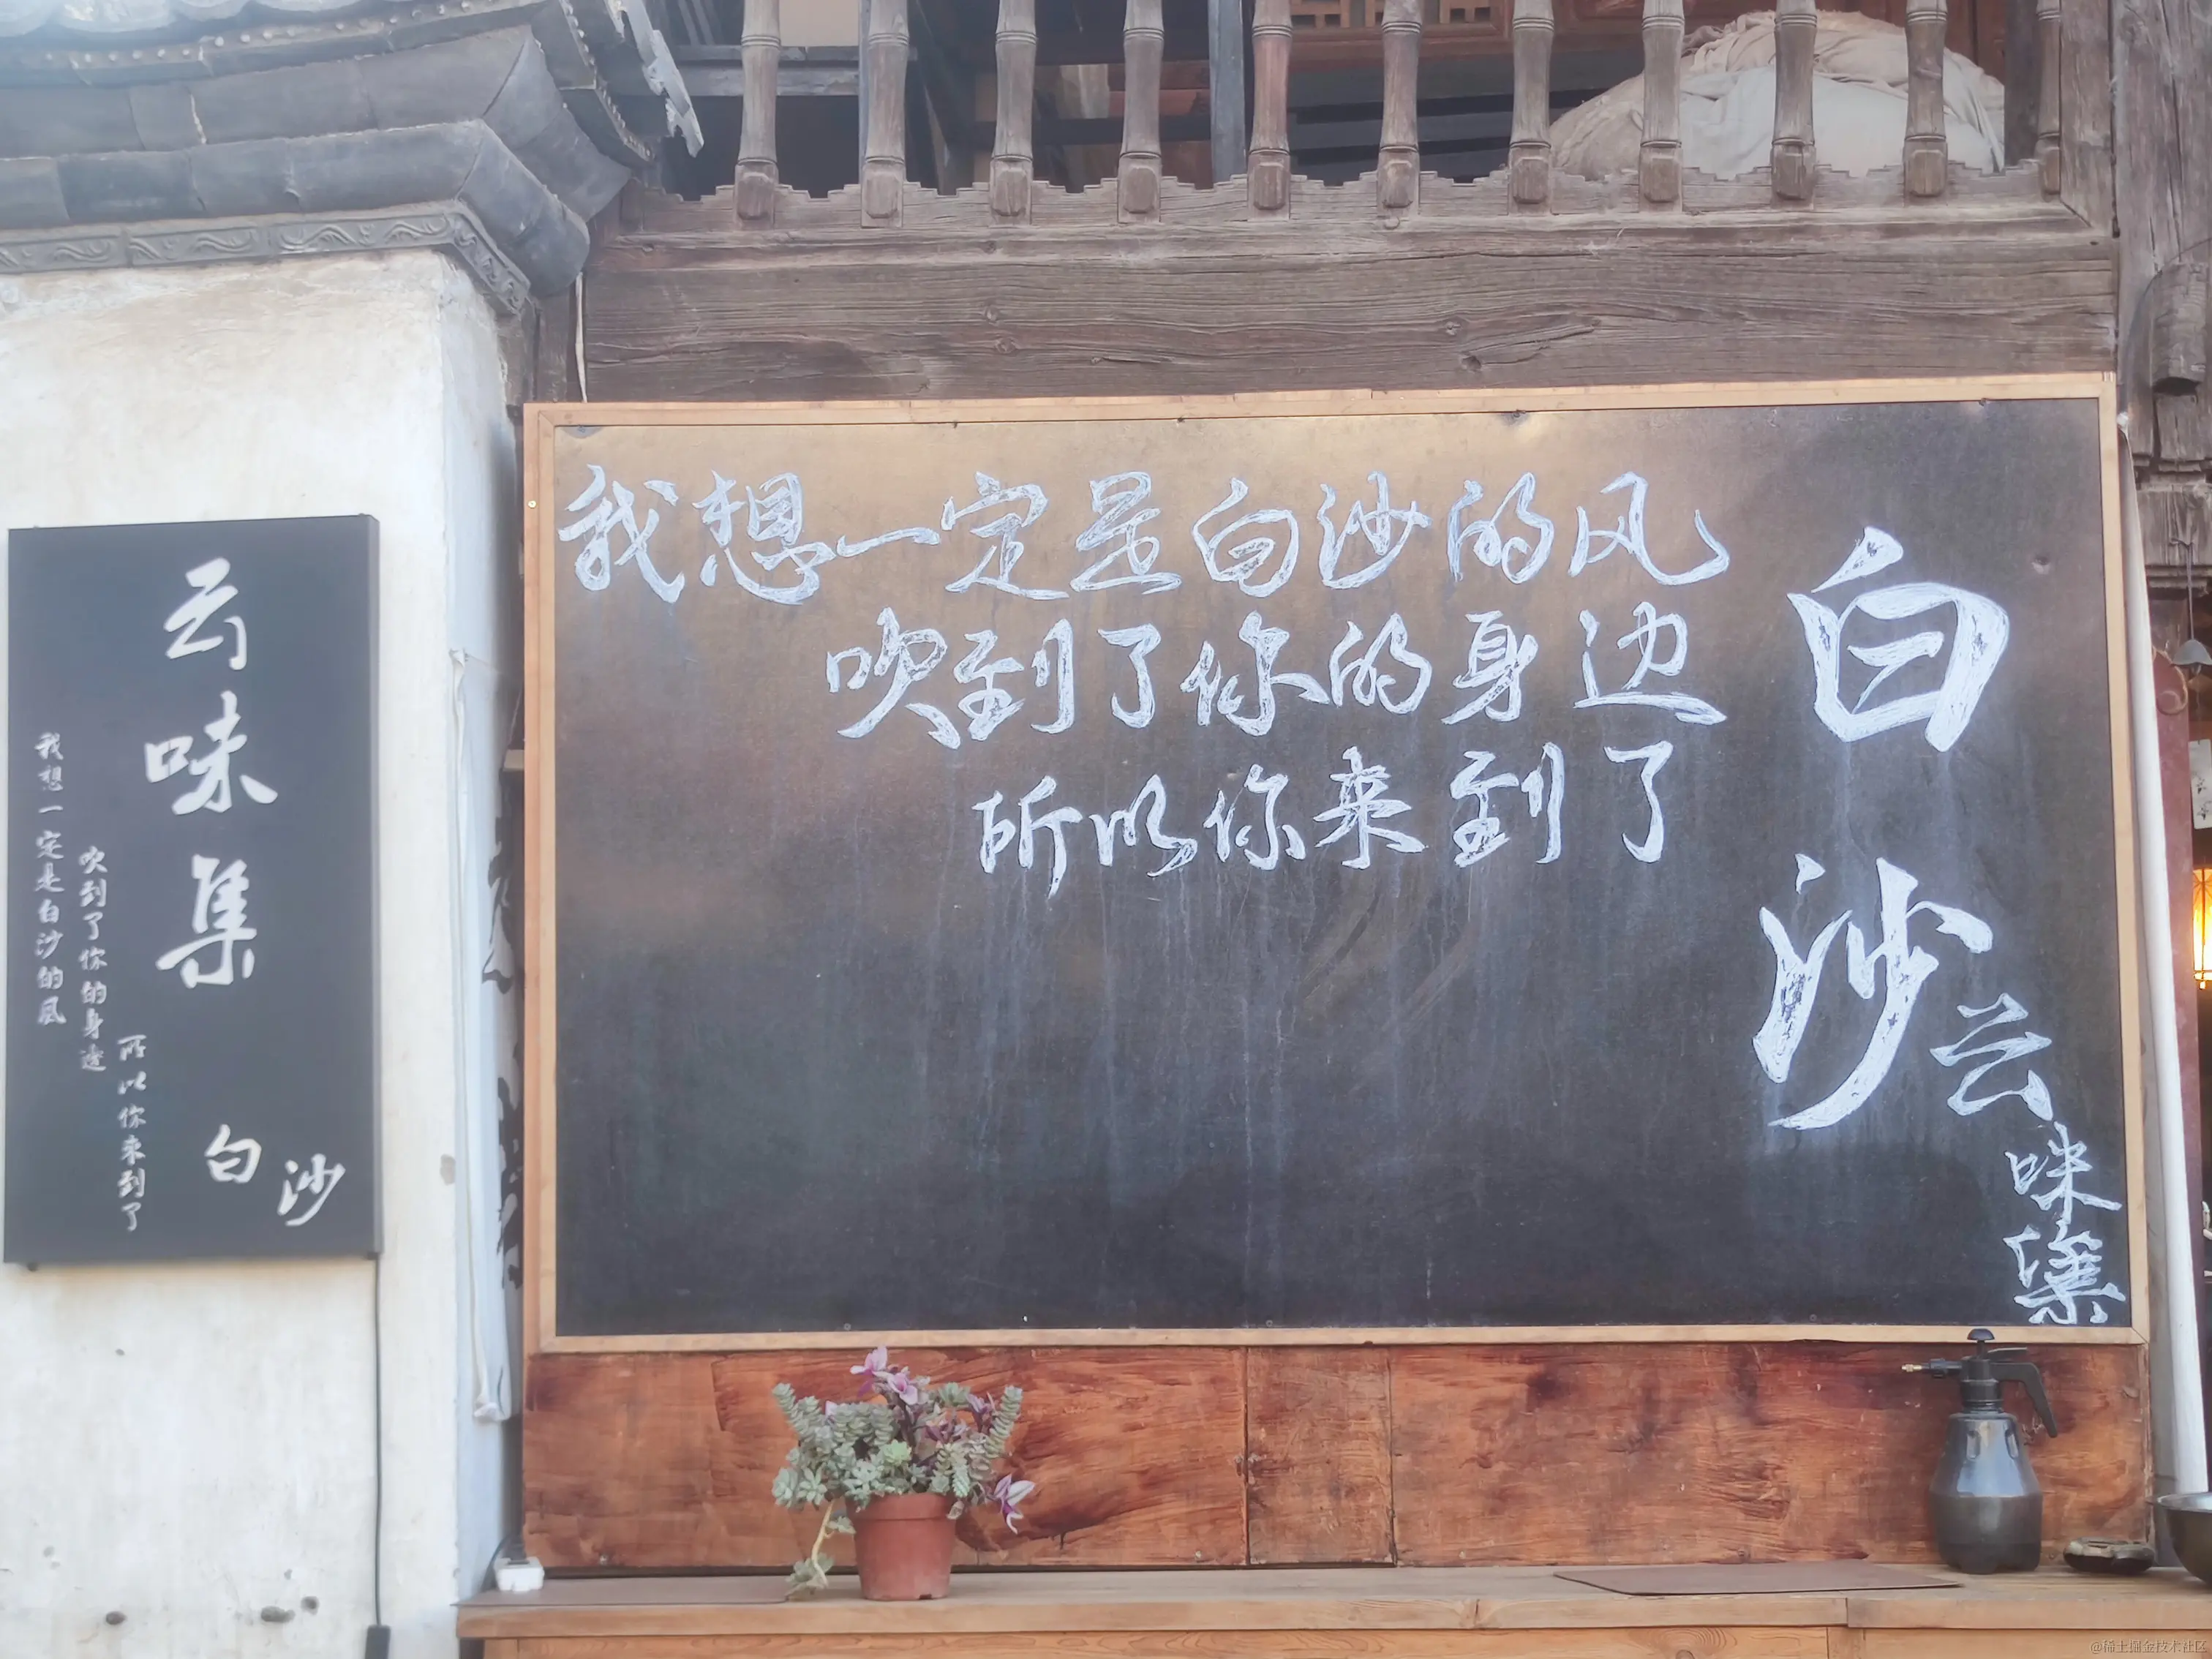 云味集
我想一定是白沙的风
吹到了你的身边
所以你来到了
白沙
我想一定是白沙的风
吹到了你的身边
所以你来到了
白沙
云
味
集
@稀土掘金技术社区